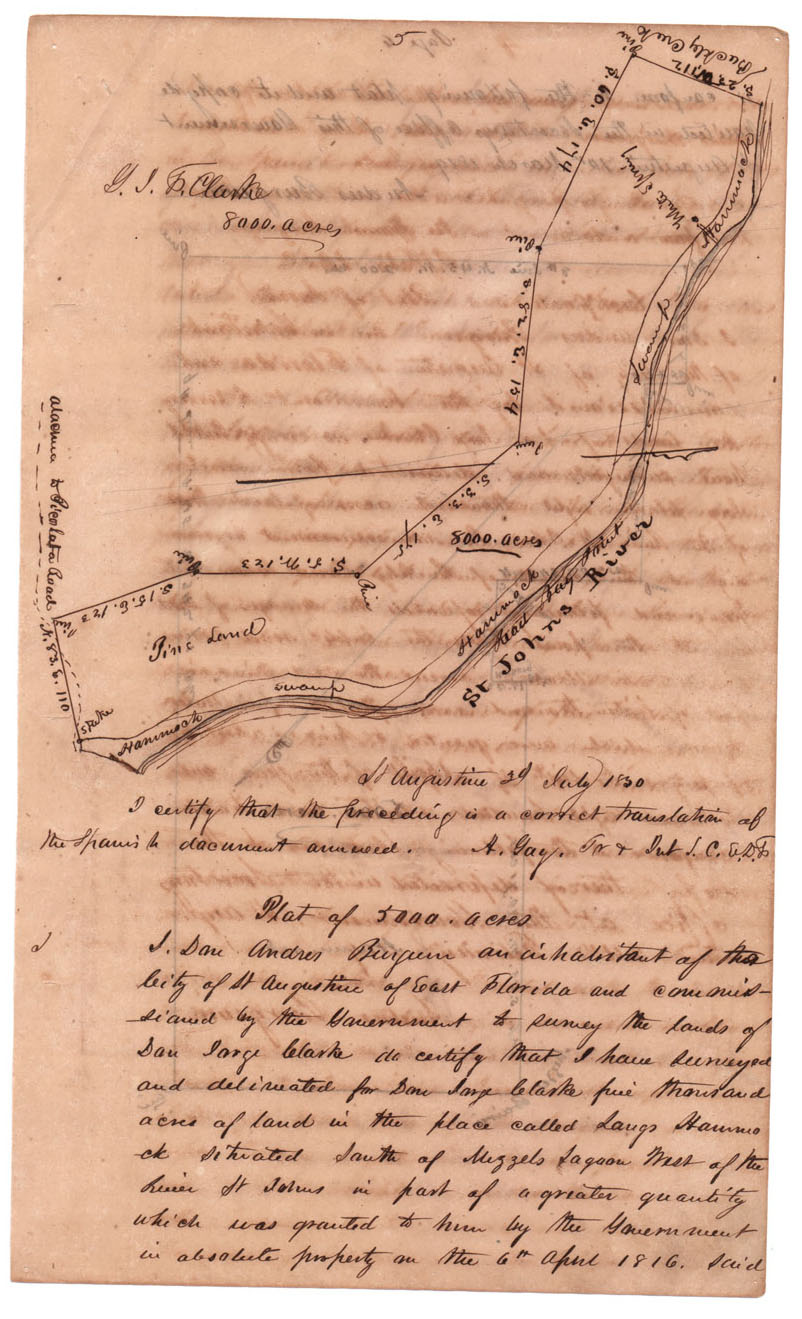 G. J. F. Clarke
8000. acres
Pine
S. 23. W. 112
Buckly Creek
S. 60. E. 174
White Spring
Hammock
Pine
Swamp
S. 82. E. 154
Pine
S. 33. E. 175
8000. acres
Alachua to Picolata Road
Pine
S. 5. W. 123
Pine
S. 15. E. 123
Pine
N. 83. E. 110
Pine Land
Hammock
St Johns River
Swamp
Stake
Hammock
St Augustine 3d July 1830
I certify that the preceeding is a correct translation of
the Spanish document annexed. A. Gay. Tr & Int S. C. E. D. F
Plat of 5000. acres
I. Don Andres Burgevin an inhabitant of the
City of St Augustine of East Florida and commis-
sioned by the Government to survey the lands of
Don Jorge Clarke do certify that I have surveyed
and delineated for Don Jorge Clarke five thousand
acres of land in the place called Langs Hammo
ck situated South of Mizzels Lagoon West of the
River St Johns in part of a greater quantity
which was granted to him by the Government
in absolute property on the 6th April 1816. Said